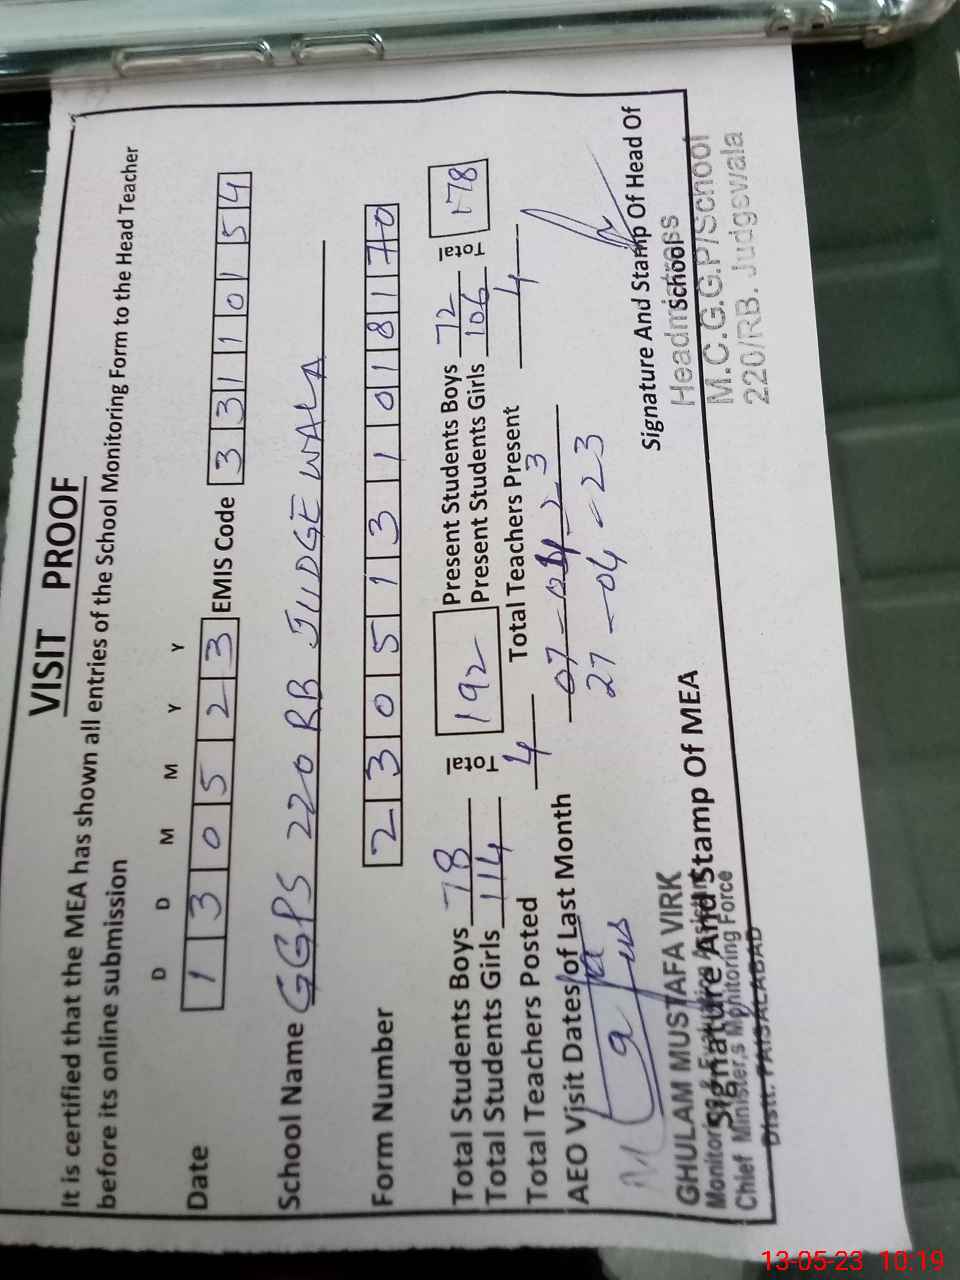 VISIT PROOF
It is certified that the MEA has shown all entries of the School Monitoring Form to the Head Teacher
before its online submission
D D M M Y Y
Date 1 3 0 5 2 3 EMIS Code 3 3 1 1 0 1 5 4
School Name GGPS 220 RB JUDGEWALA
Form Number 2 3 0 5 1 3 1 0 1 8 1 7 0
Total Students Boys 78 Total 192 Present Students Boys 72 Total 178
Total Students Girls 114 Present Students Girls 106
Total Teachers Posted 4 Total Teachers Present 4
AEO Visit Dates of Last Month 07-04-23
27-04-23
Signature And Stamp Of Head Of
School
Headmistress
M.C.G.G.P/School
220/RB. Judgewala
GHULAM MUSTAFA VIRK
Monitoring & Evaluation Assistant
Signature And Stamp Of MEA
Chief Minister,s Monitoring Force
Distt. FAISALABAD
13-05-23 10:19